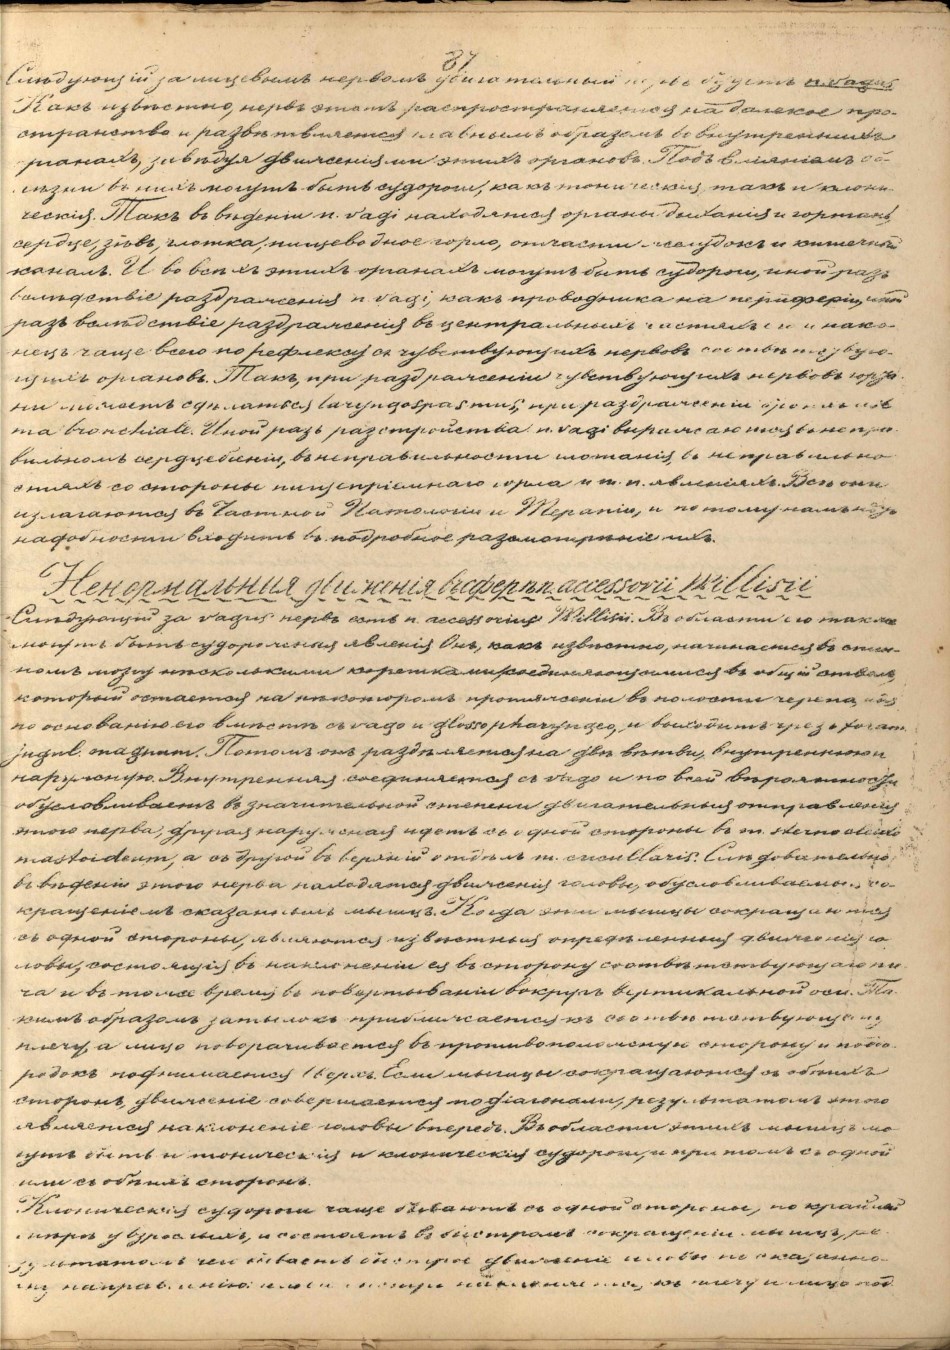 87
Слѣдующій за лицевымъ нервомъ двигательный нервъ будетъ n. vagus.
Какъ извѣстно, нервъ этотъ распространяется на далекое про-
странство и развѣтвляется главнымъ образомъ во внутреннихъ
органахъ, завѣдуя движеніями этихъ органовъ. Подъ вліяніемъ бо-
лѣзни въ нихъ могутъ быть судороги, какъ тоническія такъ и клони-
ческія. Такъ въ вѣденіи n. vagi находятся органы дыханія и гортань,
сердце, зѣвъ, глотка, пищеводное горло, отчасти желудокъ и кишечный
каналъ. И во всѣхъ этихъ органахъ могутъ быть судороги, иной разъ
вслѣдствіе раздраженія n. vagi, какъ проводника на периферіи, иной
разъ вслѣдствіе раздраженія въ центральныхъ частяхъ его и нако-
нецъ чаще всего по рефлексу съ чувствующихъ нервовъ соотвѣтствую-
щихъ органовъ. Такъ, при раздраженіи чувствующихъ нервовъ горта-
ни можетъ сдѣлаться laryngospasmus, при раздраженіи
bronchiale. Иной разъ разстройства n. vagi выражаются въ непра-
вильномъ сердцебіеніи, въ неправильности глотанія, въ неправильно-
стяхъ со стороны пищепріемнаго горла и т. п. явленіяхъ. Всѣ они
излагаются въ Частной Патологіи и Терапіи, и потому намъ нѣтъ
надобности входить въ подробное разсмотрѣніе ихъ.
Ненормальныя движенія въ сферѣ n. accessorii Willisii
Слѣдующій за vagus нервъ есть n. accessorius Willisii. Въ области его также
могутъ быть судорожныя явленія. Онъ, какъ извѣстно, начинается въ спин-
номъ мозгу нѣсколькими корешками, соединяющимися въ общій стволъ,
который остается на нѣкоторомъ протяженіи въ полости черепа, идя
по основанію его вмѣстѣ съ vago и glossopharyngeo, и выходитъ чрезъ foram.
jugul. magnum. Потомъ онъ раздѣляется на двѣ вѣтви, внутреннюю и
наружную. Внутренняя соединяется съ vago и по всей вѣроятности
обусловливаетъ въ значительной степени двигательныя отправленія
этого нерва, другая наружная идетъ съ одной стороны въ m. sterno cleido
mastoideum, а съ другой въ верхній отдѣлъ m. cucullaris. Слѣдовательно,
въ вѣденіи этого нерва находятся движенія головы, обусловливаемыя со-
кращеніемъ сказанныхъ мышцъ. Когда эти мышцы сокращаются
съ одной стороны, являются извѣстныя опредѣленныя движенія го-
ловы, состоящія въ наклоненіи ея въ сторону соотвѣтствующаго пле-
ча и въ тоже время въ повертываніи вокругъ вертикальной оси. Та-
кимъ образомъ затылокъ приближается къ соотвѣтствующему
плечу, а лицо поворачивается въ противоположную сторону и подбо-
родокъ поднимается вверхъ. Если мышцы сокращаются съ обѣихъ
сторонъ, движеніе совершается по діагонали, результатомъ этого
является наклоненіе головы впередъ. Въ области этихъ мышцъ мо-
гутъ быть и тоническія и клоническія судороги, и притомъ съ одной
или съ обѣихъ сторонъ.
Клоническія судороги чаще бываютъ съ одной стороны, по крайней
мѣрѣ у взрослыхъ, и состоятъ въ быстромъ сокращеніи мышцъ, ре-
зультатомъ чего бываетъ быстрое движеніе головы по сказанно-
му направленію: наклоняется къ плечу и лицо под